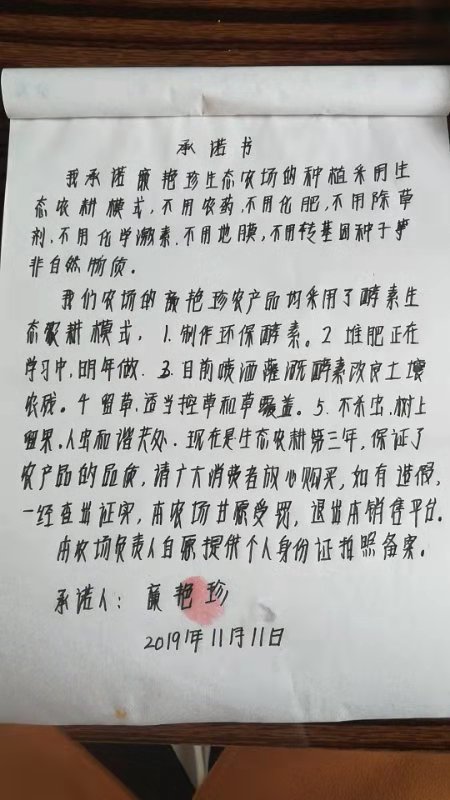 承诺书
我承诺颜艳珍生态农场的种植采用生
态农耕模式，不用农药，不用化肥，不用除草
剂，不用化学激素，不用地膜，不用转基因种子等
非自然物质。
我们农场的颜艳珍农产品均采用了酵素生
态农耕模式，1.制作环保酵素。2堆肥正在
学习中，明年做．3.目前喷洒灌溉酵素改良土壤
农残。4留草，适当控草和草覆盖。5.不杀虫，树上
留果。人虫和谐共处．现在是生态农耕第三年，保证了
农产品的品质，请广大消费者放心购买，如有造假，
一经查出证实，本农场甘愿受罚，退出本销售平台。
本农场负责人自愿提供个人身份证拍照备案。
承诺人：颜艳珍
2019年11月11日